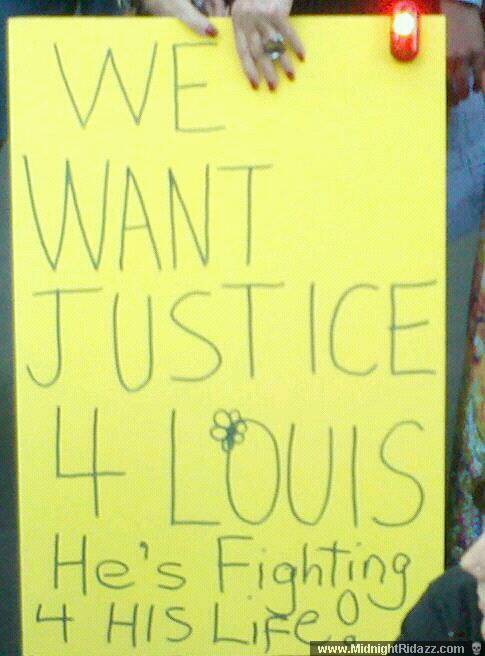 WE
WANT
JUSTICE
4 LOUIS
He's Fighting
4 HIS LiFe!
www.MidnightRidazz.com